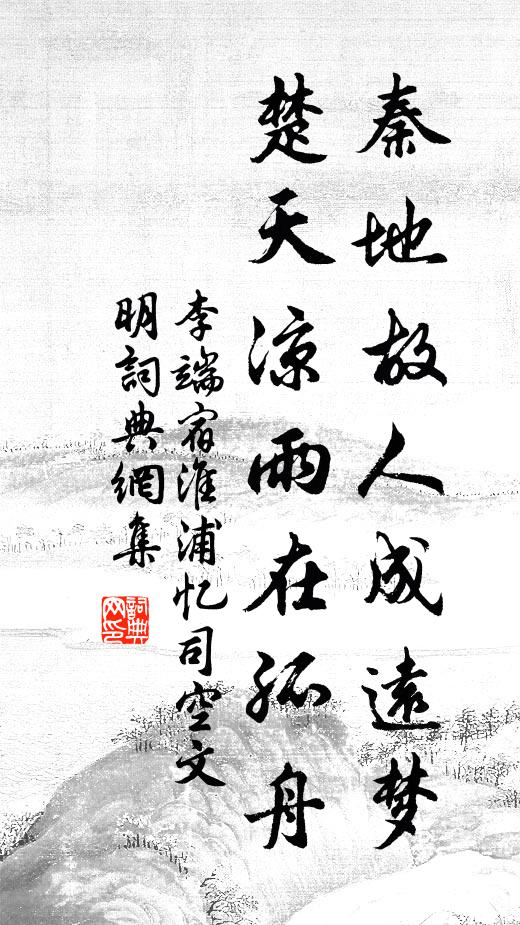 秦地故人成遠梦
楚天凉雨在孤舟
李端宿淮浦忆司空文
明詞典網集
詞典网印